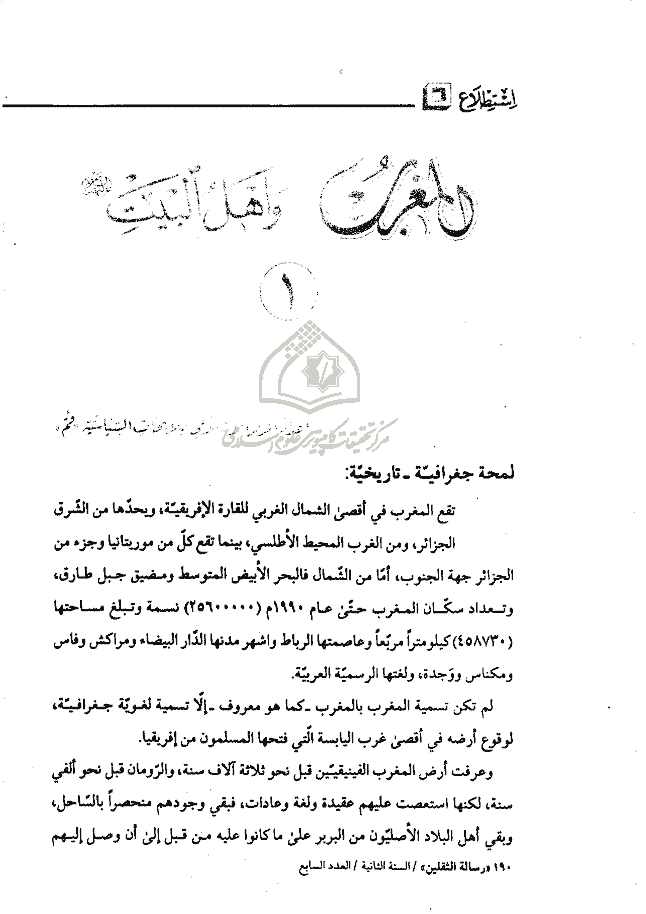 اِسْتِطْلَاع ٦
المغرب وَأهلُ البَيْتِ
١
مركز تحقيقات كامپيوترى علوم اسلامى
السياسية «قم»
لمحة جغرافيّة ـ تاريخيّة:
تقع المغرب في أقصىٰ الشمال الغربي للقارة الإفريقيّة، ويحدّها من الشّرق
الجزائر، ومن الغرب المحيط الأطلسي، بينما تقع كلّ من موريتانيا وجزء من
الجزائر جهة الجنوب، أمّا من الشّمال فالبحر الأبيض المتوسط ومضيق جبل طارق،
وتـعداد سكّـان المـغرب حـتّىٰ عـام ١٩٩٠م (٢٥٦٠٠٠٠٠) نسمة وتـبلغ مسـاحتها
(٤٥٨٧٣٠) كيلومتراً مربّعاً وعاصمتها الرباط واشهر مدنها الدّار البيضاء ومراكش وفاس
ومكناس ووَجدة، ولغتها الرسميّة العربيّة.
لم تكن تسمية المغرب بالمغرب ـ كما هو معروف ـ إلّا تسمية لغـويّة جـغرافـيّـة،
لوقوع أرضه في أقصىٰ غرب اليابسة الّتي فتحها المسلمون من إفريقيا.
وعرفت أرض المغرب الفينيقيّين قبل نحو ثلاثة آلاف سنة، والرّومان قبل نحو ألفي
سنة، لكنها استعصت عليهم عقيدة ولغة وعادات، فبقي وجودهم منحصراً بالسّاحل،
وبقي أهل البلاد الأصليّون من البربر علىٰ ما كانوا عليه مـن قـبل إلىٰ أن وصـل إليـهم
١٩٠ «رسالة الثقلين» / السنة الثانية / العدد السابع